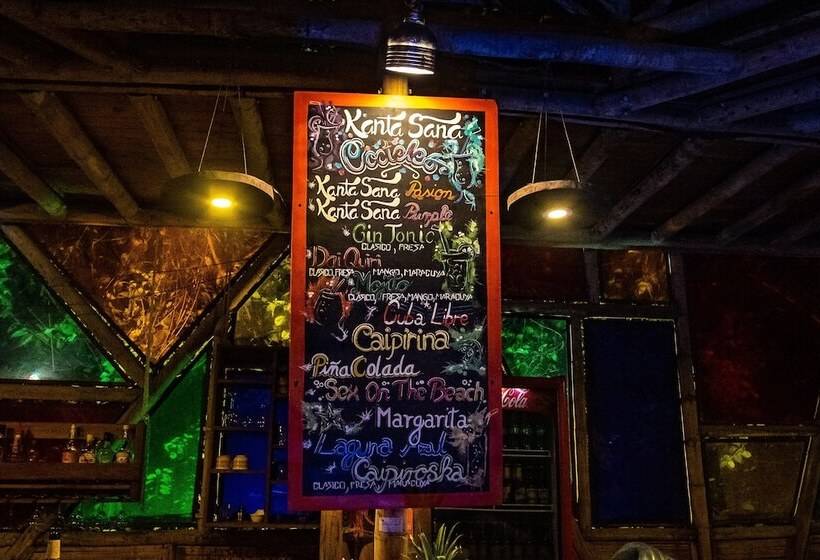 Kanta Sana
Coctels
Kanta Sana Pasion
Kanta Sana Purple
Gin Tonic
CLASICO, FRESA
Dai Quiri
CLASICO, FRESA MANGO, MARACUYA
Mojito
CLASICO, FRESA, MANGO, MARACUYA
Cuba Libre
Caipirina
Piña Colada
Sex On The Beach
Margarita
Laguna Azul
Caipiroska
CLASICO, FRESA, MARACUYA
Cola